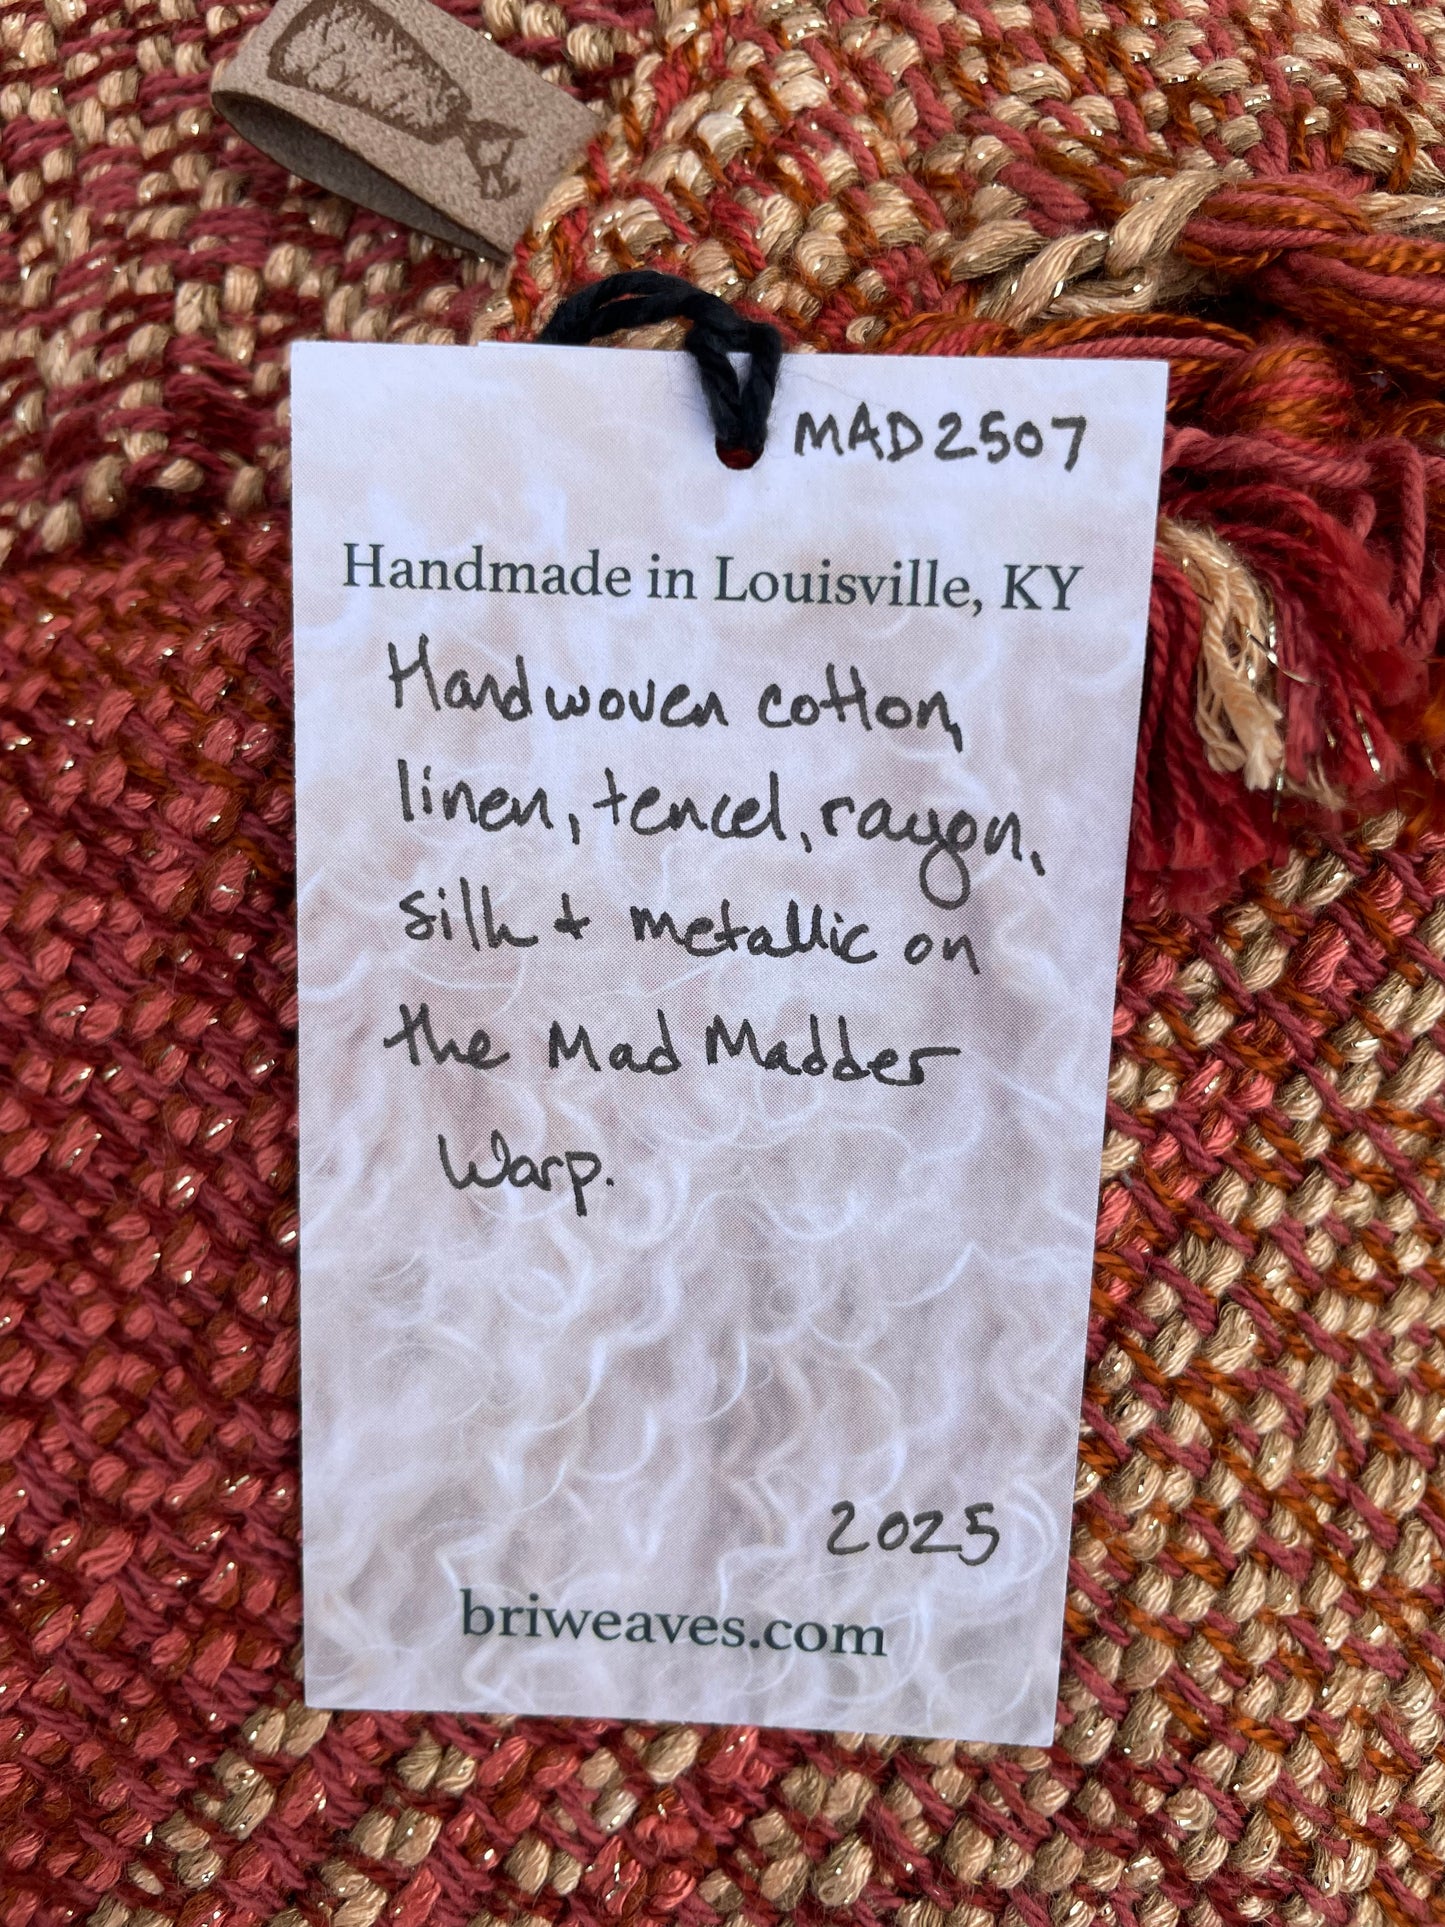 MAD2507
Handmade in Louisville, KY
Handwoven cotton,
linen, tencel, rayon,
silk + metallic on
the Mad Madder
Warp.
2025
briweaves.com